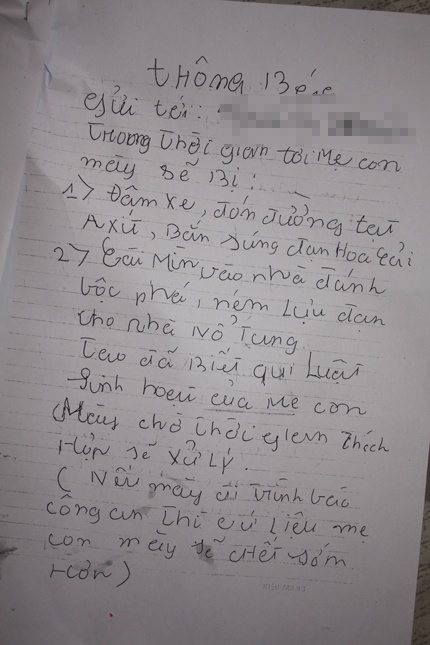 THÔNG BÁO
Gửi tới:
Trong thời gian tới Mẹ con
mày sẽ Bị:
1> Đâm xe, đón đường tạt
Axít, Bắn súng đạn Hoa Cải
2> Gài Mìn vào nhà đánh
bộc phá, ném Lựu đạn
cho nhà Nổ Tung
Tao đã Biết qui Luật
Sinh hoạt của Mẹ con
Mày chờ Thời gian Thích
Hợp sẽ Xử Lý.
( Nếu mày đi trình báo
công an thì cứ liệu mẹ
con mày sẽ chết sớm
Hơn )